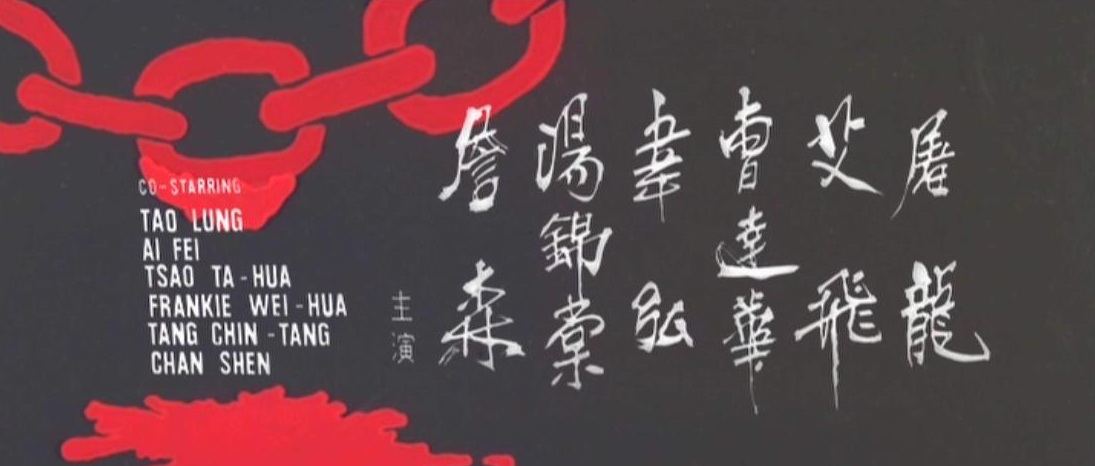 CO-STARRING
TAO LUNG
AI FEI
TSAO TA-HUA
FRANKIE WEI-HUA
TANG CHIN-TANG
CHAN SHEN
屠龍
艾飛
曹達華
韋弘
湯錦棠
詹森
主演